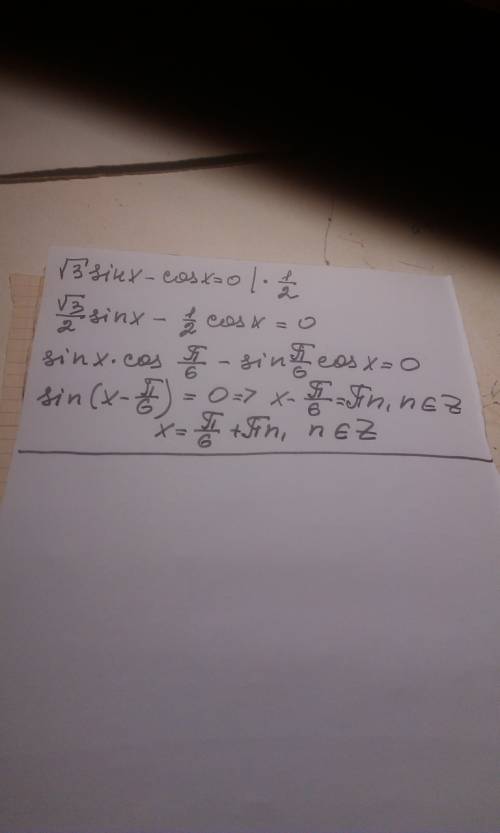 √3 sinx - cosx=0 | · 1/2
√3/2 sinx - 1/2 cosx = 0
sinx · cos π/6 - sin π/6 cosx = 0
sin(x - π/6) = 0 => x - π/6 = πn, n ∈ Z
x = π/6 + πn, n ∈ Z